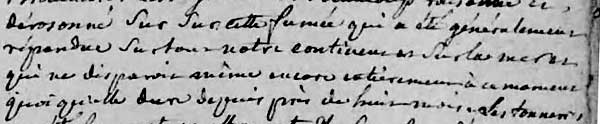 déresonné Sur Sur cette fumée qui a été généralement
répandue Sur tout notre continent et Sur la mer et
qui ne disparoit même encore entièrement à ce moment
quoi qu'elle dure depuis près de huit mois. Les tonneres